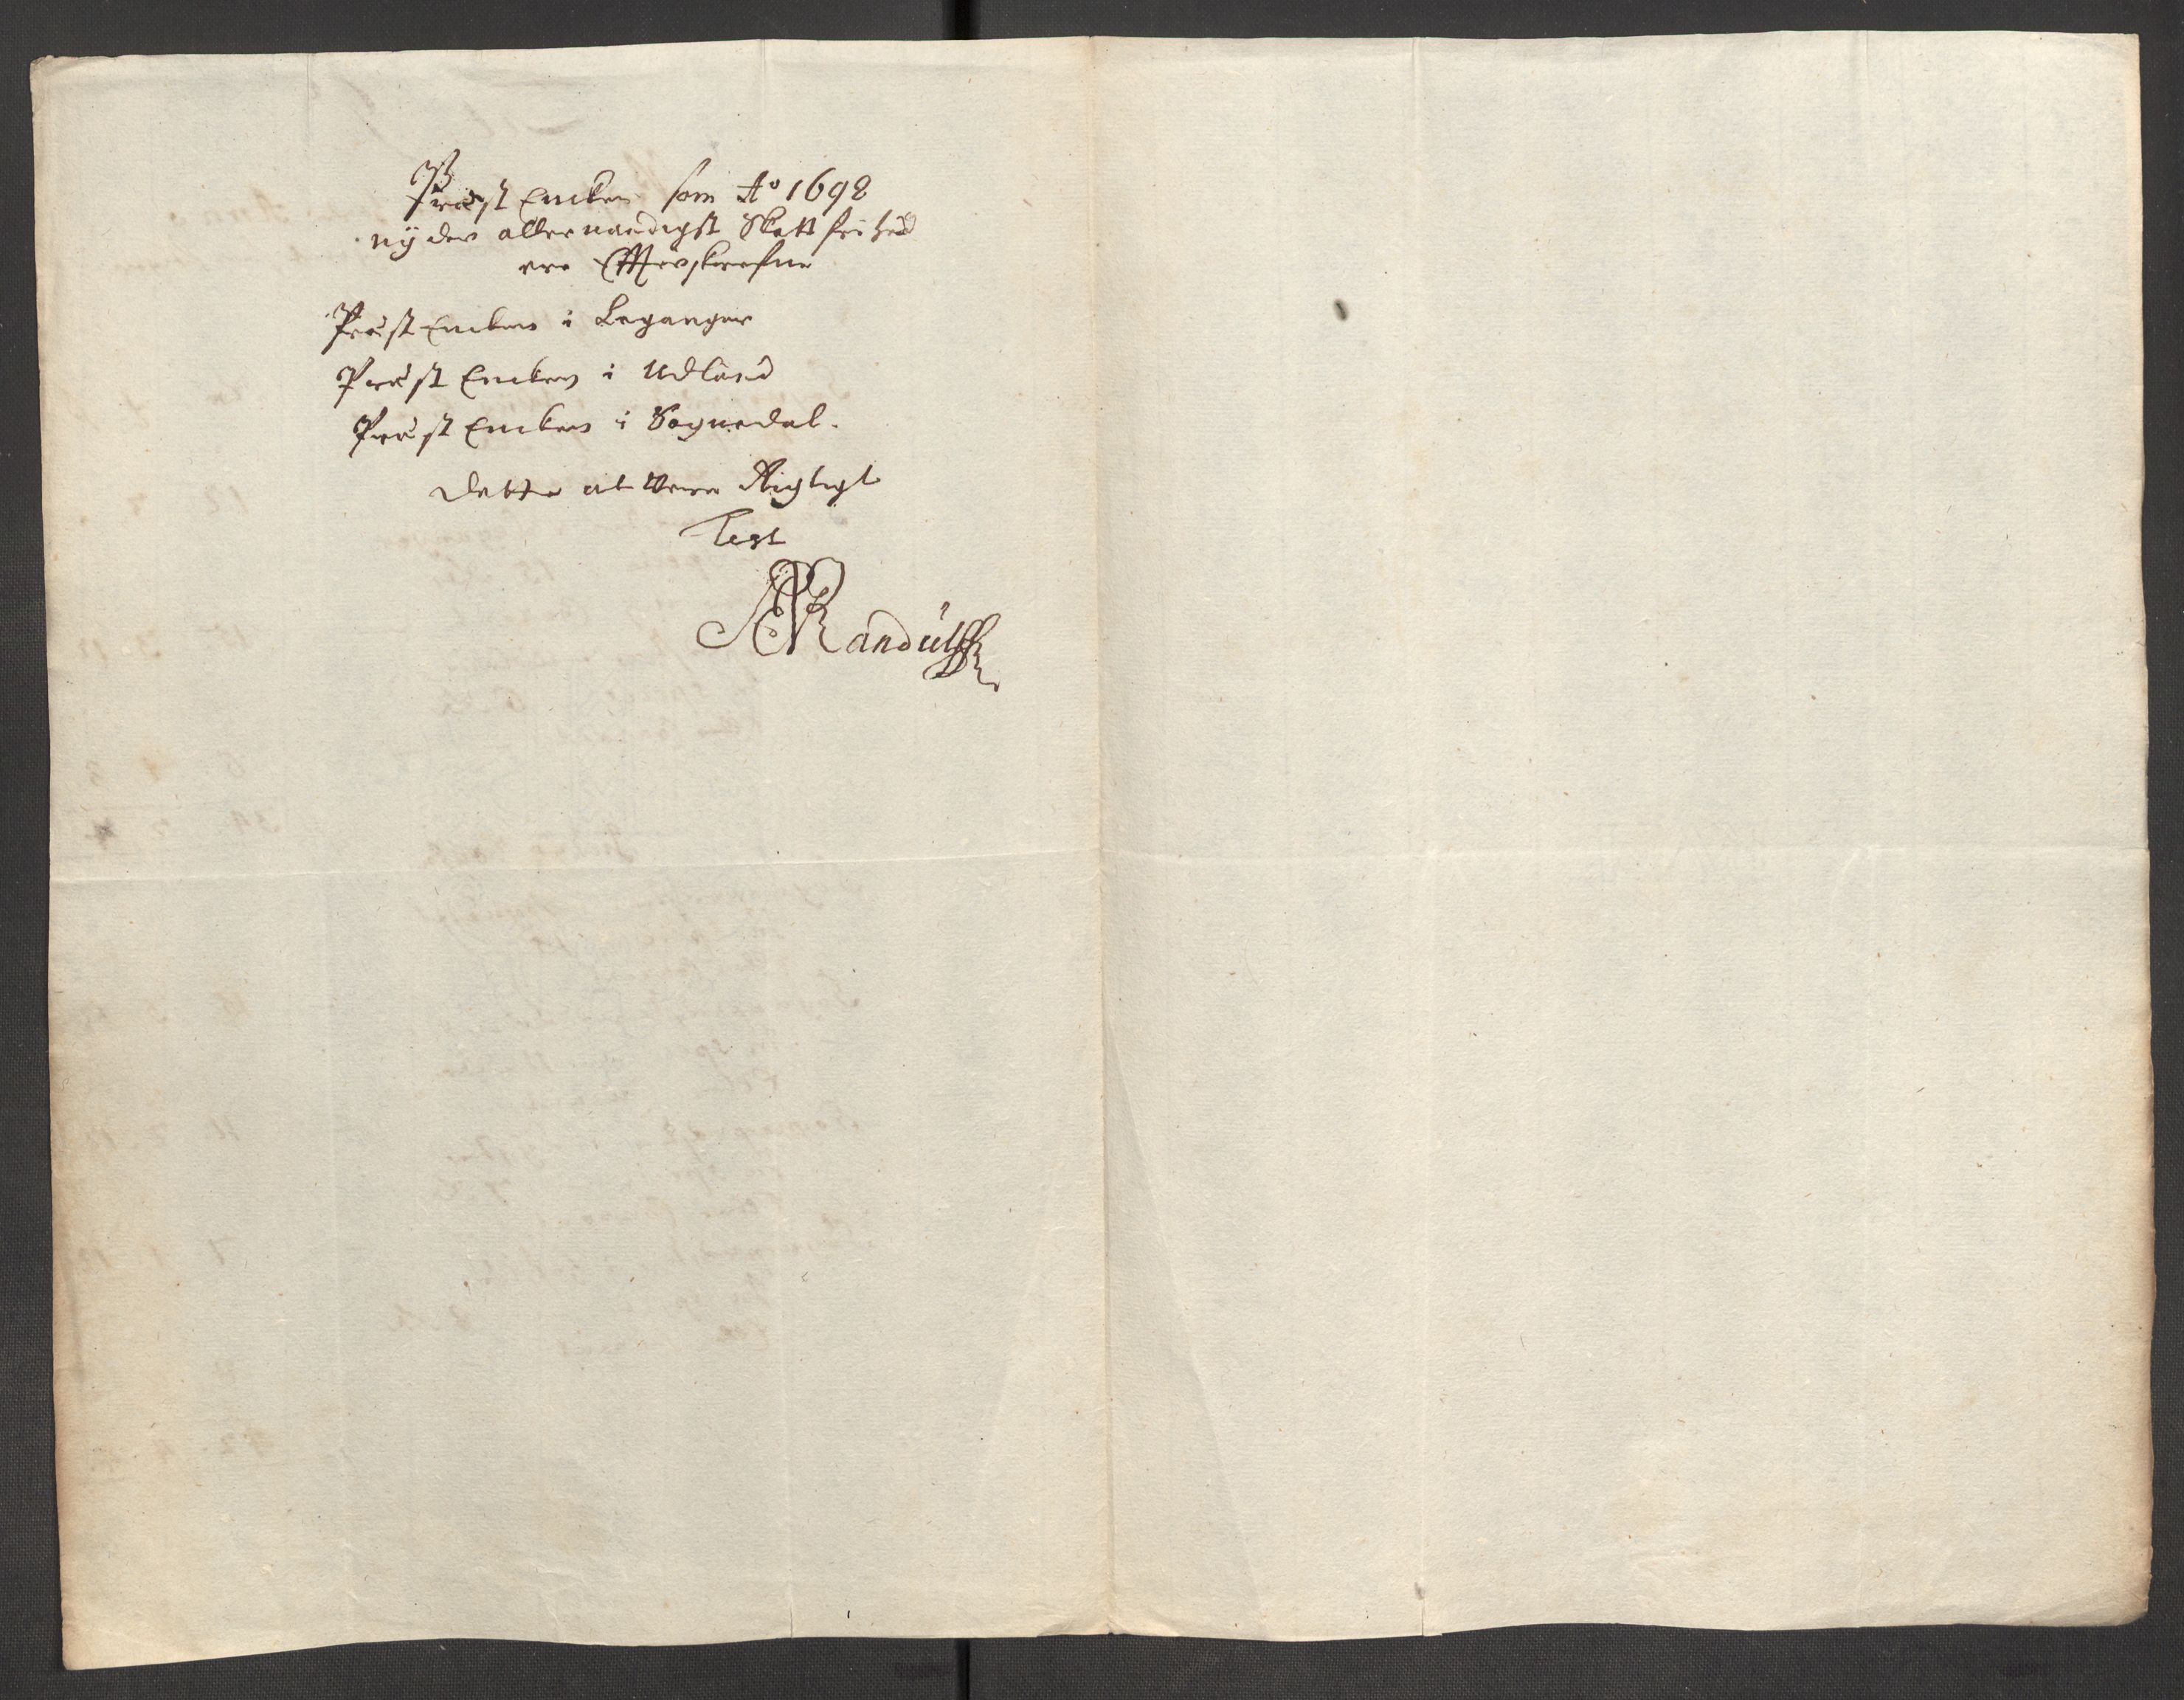 Præst Encker som Ao 1698
nyder allernaadigst Skatt frihed
ere Efterskrefne
Præst Encken i Leganger
Præst Encken i Udland
Præst Encken i Sognedal.
Dette at være Rigtigt
Test
Randulff